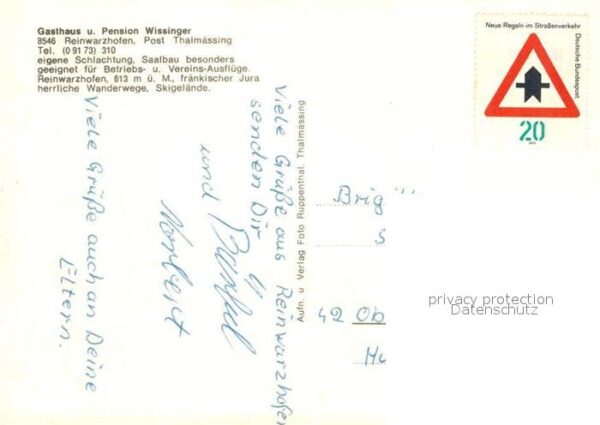 Gasthaus u. Pension Wissinger
8546 Reinwarzhofen, Post Thalmässing
Tel. (0 91 73) 310
eigene Schlachtung, Saalbau besonders
geeignet für Betriebs- u. Vereins-Ausflüge.
Reinwarzhofen, 613 m ü. M., fränkischer Jura
herrliche Wanderwege, Skigelände.
Viele Grüße aus Reinwarzhofen
senden Dir
und
Norbert
Viele Grüße auch an Deine
Eltern.
Aufn. u Verlag Foto Ruppenthal, Thalmässing
Neue Regeln im Straßenverkehr
Deutsche Bundespost
20
Brig
S
42 Ob
privacy protection
Datenschutz